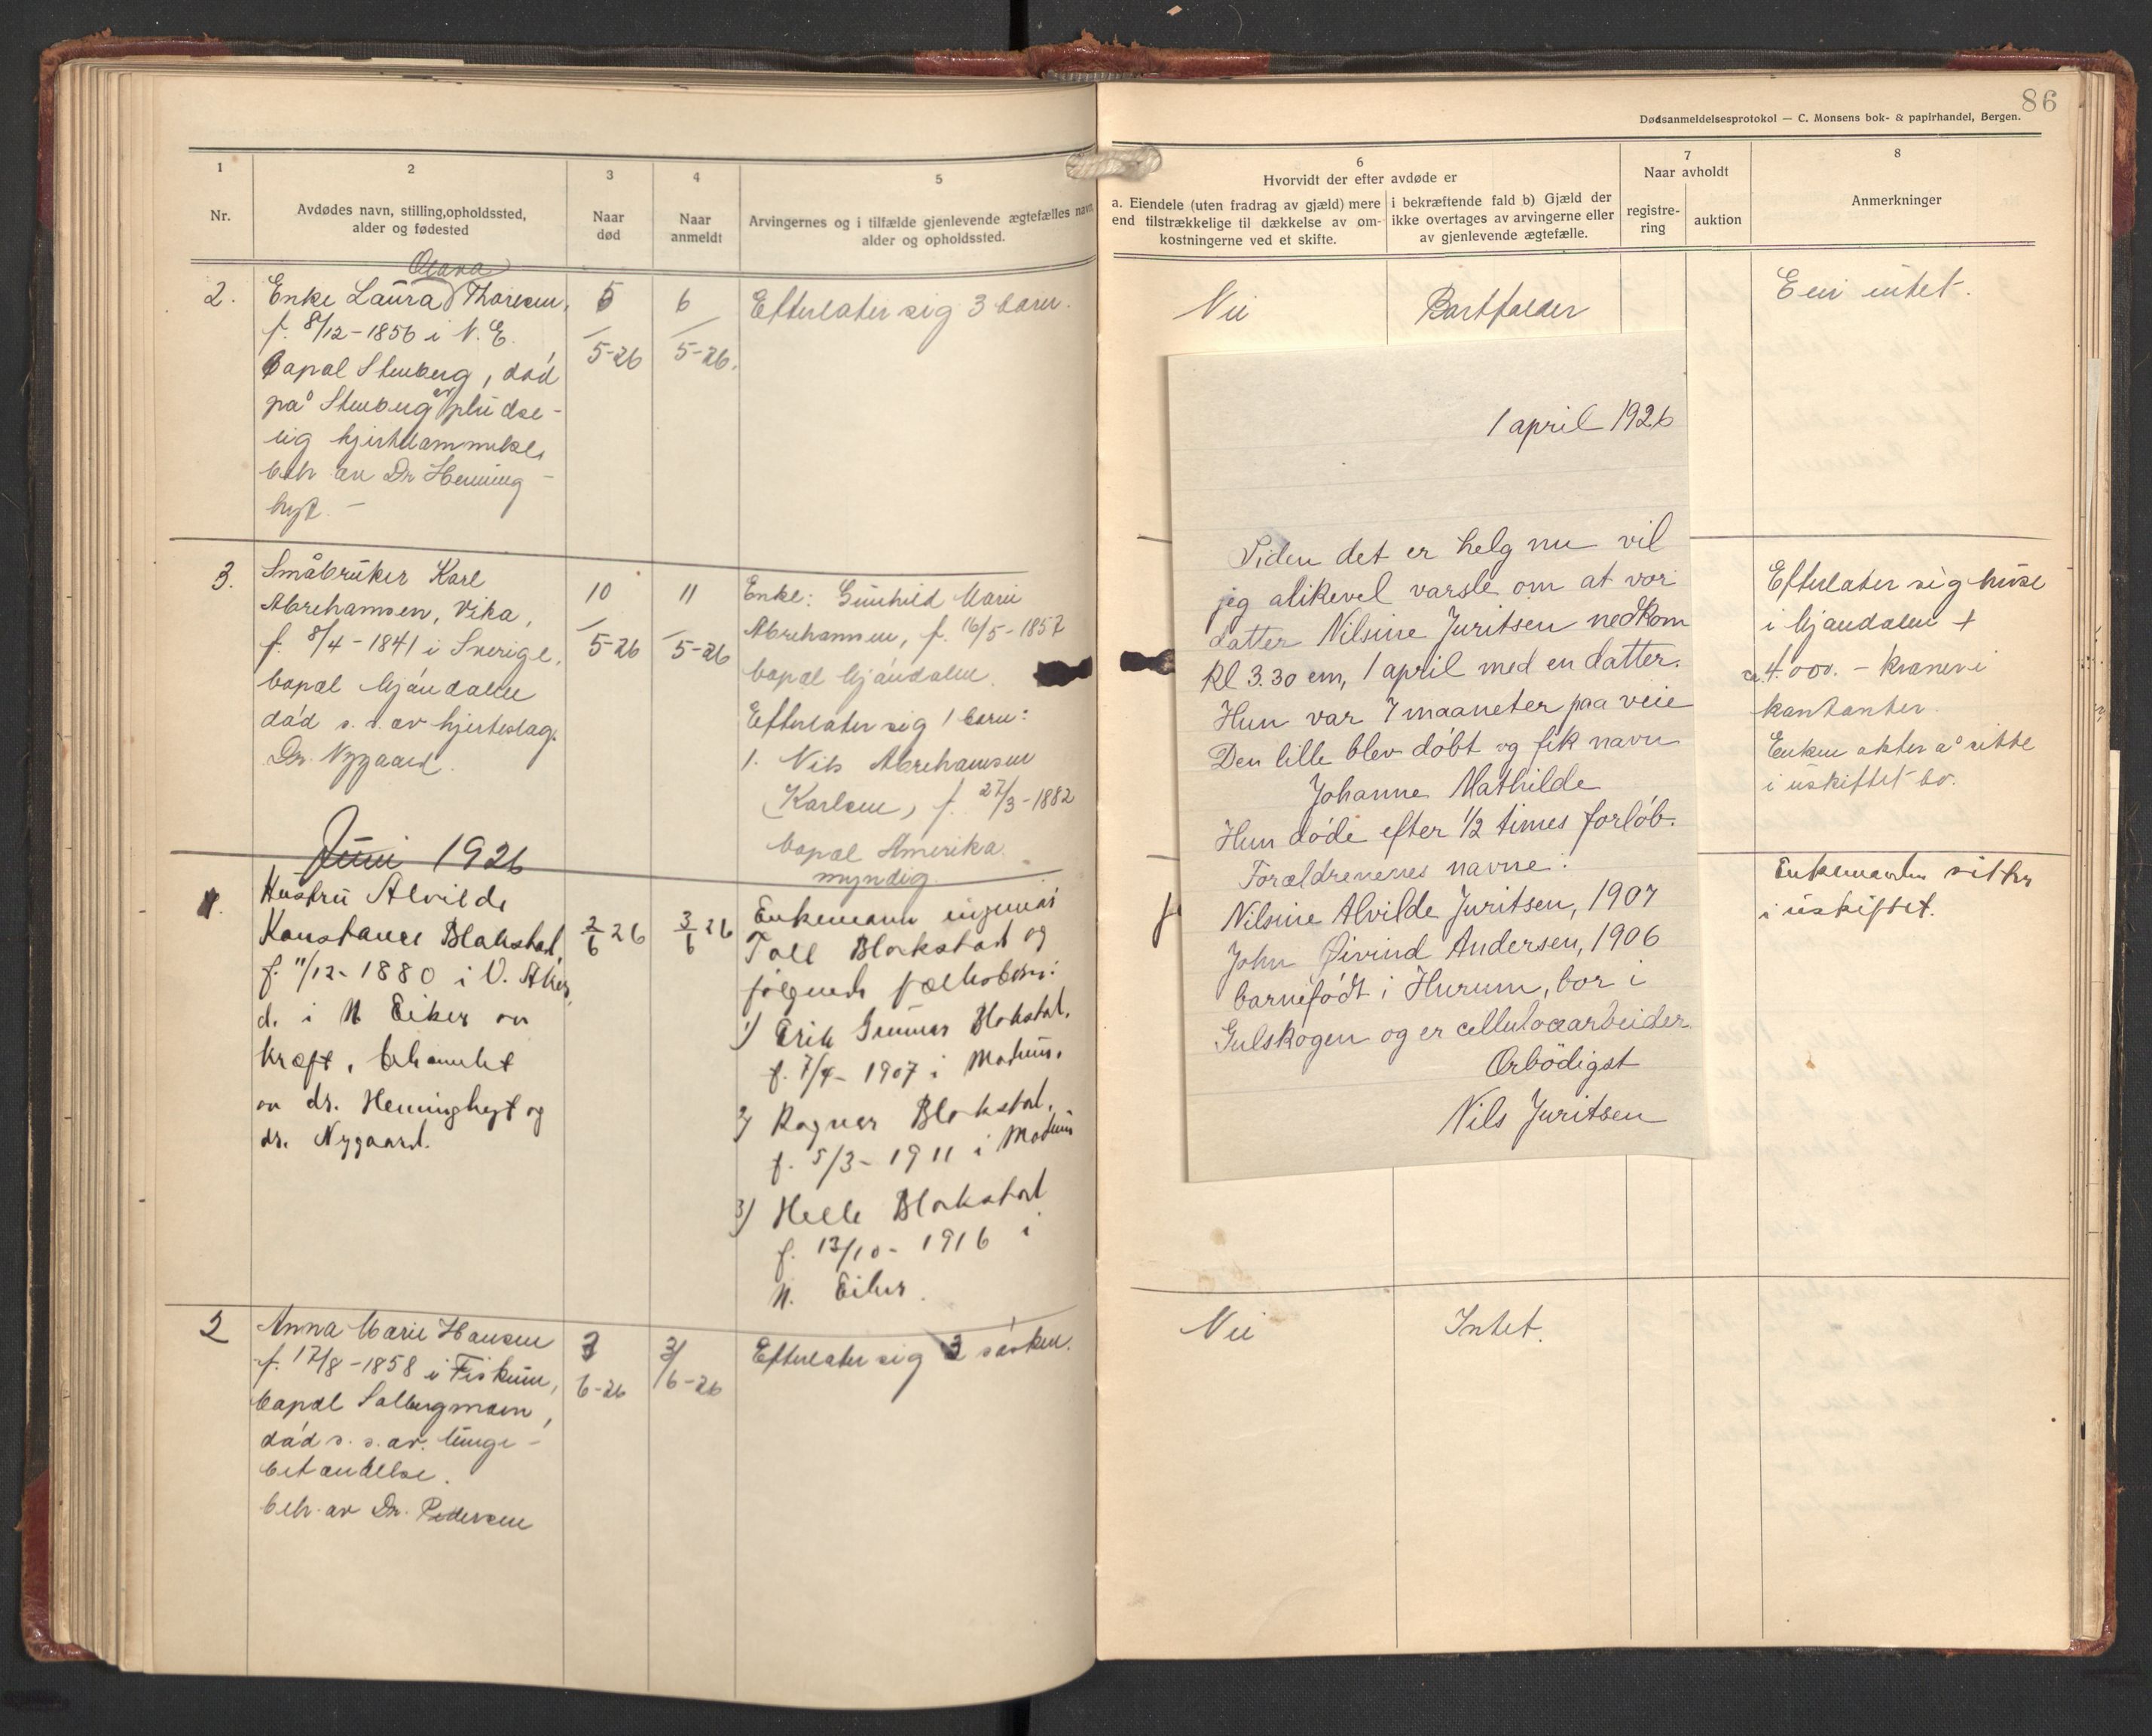 86
Dødsanmeldelsesprotokol — C. Monsens bok- & papirhandel, Bergen.
1
Nr.
2
Avdødes navn, stilling, opholdssted,
alder og fødested
3
Naar
død
4
Naar
anmeldt
5
Arvingernes og i tilfælde gjenlevende ægtefælles navn
alder og opholdssted.
6
Hvorvidt der efter avdøde er
a. Eiendele (uten fradrag av gjæld) mere
end tilstrækkelige til dækkelse av om-
kostningerne ved et skifte.
i bekræftende fald b) Gjæld der
ikke overtages av arvingerne eller
av gjenlevende ægtefælle.
7
Naar avholdt
registre-
ring
auktion
8
Anmerkninger
2.
Olava
Enke Laura Thoresen,
f. 8/12-1856 i N. E.
bopæl Stenberg, død
på Stenberg av pludse-
lig hjertelammelse
beh av Dr Henning-
hyt. -
5/5-26
6/5-26.
Efterlater sig 3 barn.
Nei
Bortfalder
Eier intet.
3.
Småbruker Karl
Abrehamsen, Vika,
f. 8/4-1841 i Sverige,
bopæl Mjøndalen
død s. s. av hjerteslag.
Dr. Nygaard.
10/5-26
11/5-26
Enke: Gunhild Marie
Abrehamsen, f. 16/5-1857
bopæl Mjøndalen.
Efterlater sig 1 barn:
1. Nils Abrehamsen
(Karlsen, f. 27/3-1882
bopæl Amerika.
myndig.
Efterlater sig huse
i Mjøndalen +
ca. 4.000.- kroner i
kontanter.
Enken akter å sitte
i uskiftet bo.
Juni 1926
1.
Hustru Alvilde
Konstance Blakstad,
f. 11/12-1880 i V. Aker,
d. i N Eiker av
kræft, behandlet
av dr. Henninghyt og
dr. Nygaard.
2/6 26
3/6 26
Enkemann ingeniør
Blakstad og
følgende fællesbarn:
1) Erik Gunnar Blakstad,
f. 7/4-1907 i Modum.
2) Ragnar Blakstad,
f. 5/3-1911 i Modum
3) Helle Blakstad
f. 13/10-1916 i
N. Eiker.
Enkemanden sitter
i uskiftet.
2
Anna Marie Hansen
f. 17/8-1858 i Fiskum,
bopæl Solbergmoen,
død s. s. av. lunge-
betændelse.
beh. av Dr. Pedersen
3/6-26
Efterlater sig 2 søsken.
Nei
Intet.
1 april 1926
Siden det er helg nu vil
jeg alikevel varsle om at vor
datter Nilsine Juritsen nedkom
Kl 3.30 em, 1 april med en datter.
Hun var 7 maaneter paa veie
Den lille blev døbt og fik navn
Johanne Mathilde
Hun døde efter 1/2 times forløb.
Forældrenenes navne:
Nilsine Alvilde Juritsen, 1907
John Øivind Andersen, 1906
barnefødt i Hurum, bor i
Gulskogen og er cellulosearbeider.
Ørbödigst
Nils Juritsen